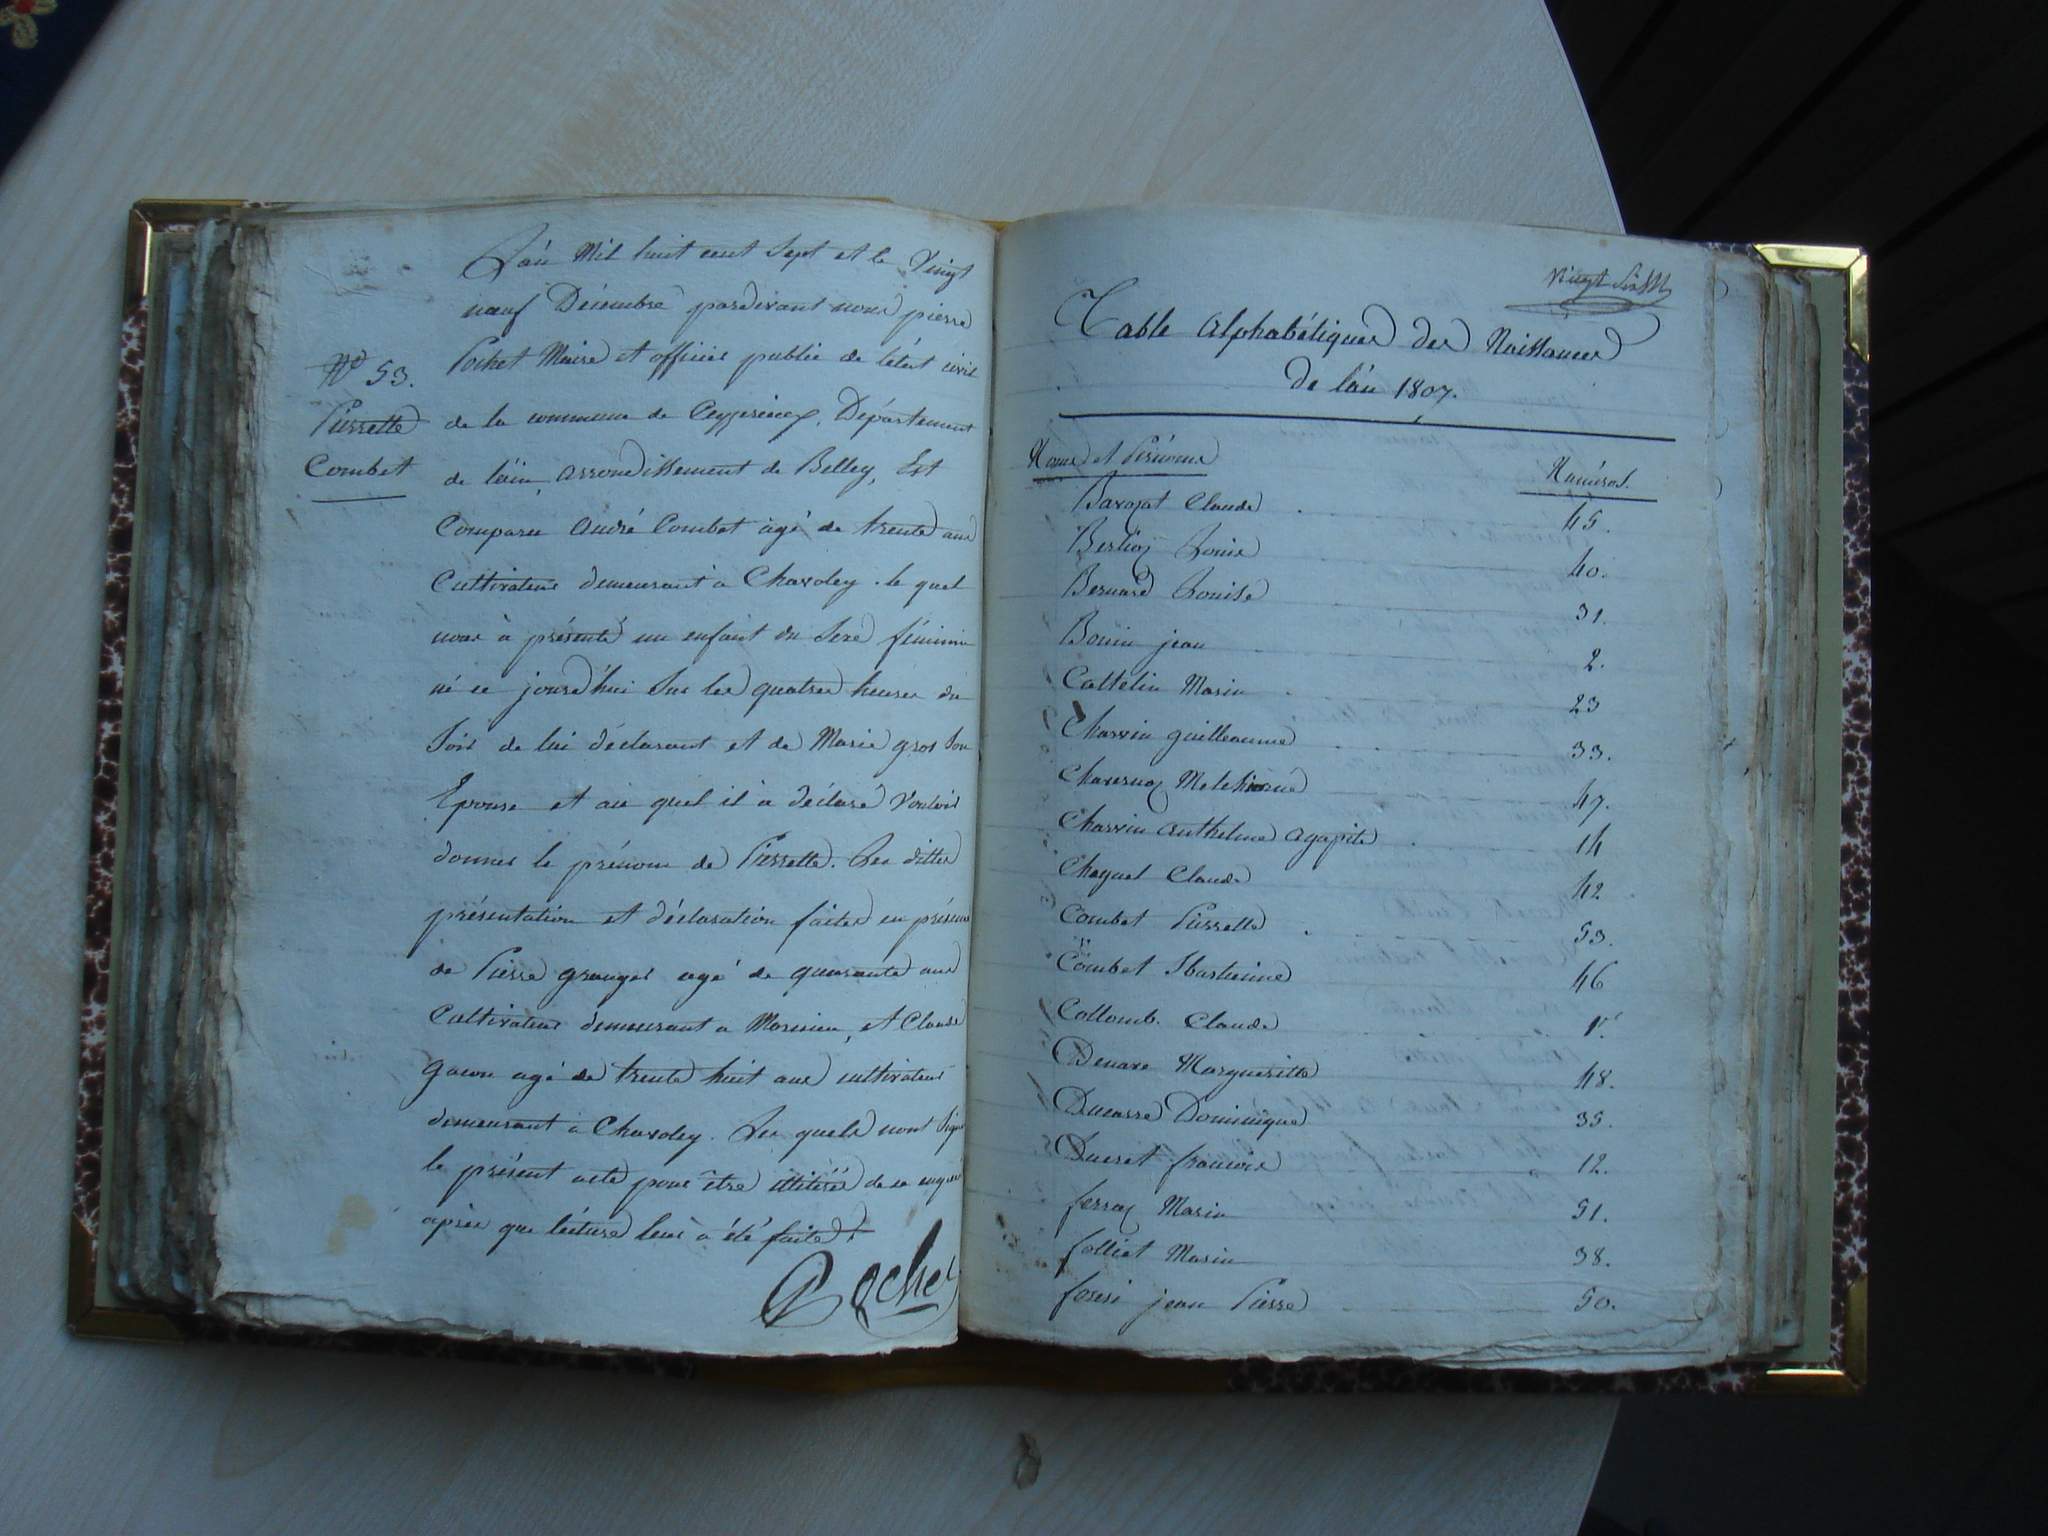 L'an Mil huit cent Sept et le Vingt
neuf Décembre pardevant nous pierre
Pochet Maire et officier public de l'état civil
de la commune de Ceyzerieux, Département
de l'ain, arrondissement de Belley, Est
Comparu André Combet agé de trente ans
Cultivateur demeurant a Chavoley. le quel
nous à présenté un enfant du Sexe féminin
né ce jourd'hui Sur les quatres heures du
Soir de lui déclarant et de Marie gros Son
Epouse et au quel il a déclaré Vouloir
donner le prénom de Pierrette. Les dittes
présentation et déclaration faites en présence
de Pierre granger agé de quarante ans
Cultivateur demeurant a Marinieu, et Claude
gacon agé de trente huit ans cultivateur
demeurant à Chavoley. Les quels n'ont Signé
le présent acte pour être illitéré de ce enquis
après que lecture leur à été faite
Pochet
No 53.
Pierrette
Combet
Vingt Sixth
Table Alphabétique des Naissances
De l'an 1807.
Noms et Prénoms
Numéros.
Barozat Claude 45.
Berlioz Louis 40.
Bernard Louise 31.
Bonin jean 2.
Cattelin Marie 23
Charvin guilleaume 33.
Chavernoz Melchior 47.
Charvin Anthelme Agapite 14
Chaquet Claude 42
Combet Pierrette 53.
Combet 46
Collomb. Claude 1er
Denare Marguerite 48.
Ducarre Dominique 35.
Ducret françois 12.
ferraz Marie 51.
folliet Marie 38.
jean Pierre 50.